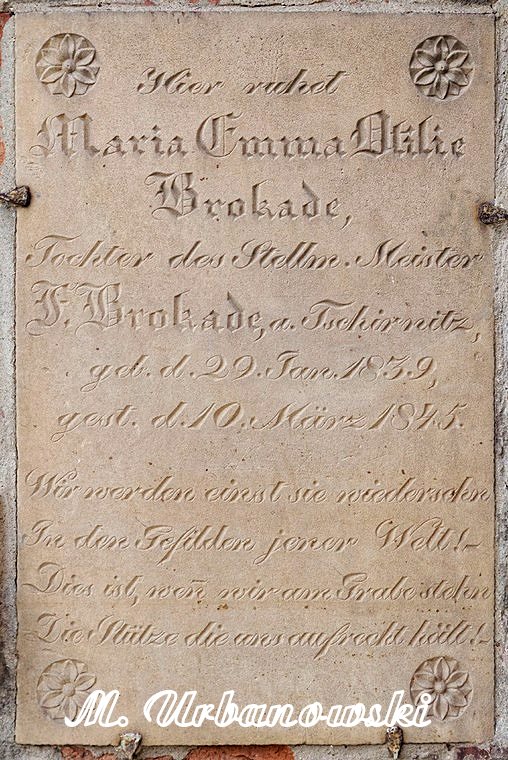 Hier ruhet
Maria Emma Ottilie
Brokade,
Tochter des Stellm. Meister
F. Brokade, a. Tschirnitz,
geb. d. 29. Jan. 1839,
gest. d. 10. März 1845.
Wir werden einst sie wiedersehn
In den Gefilden jener Welt!_
Dies ist, wen̄ wir am Grabe stehn
Die Stütze die uns aufrecht hält!_
M. Urbanowski